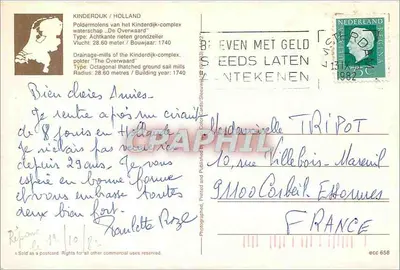 KINDERDIJK / HOLLAND
Poldermolens van het Kinderdijk-complex
waterschap „De Overwaard"
Type: Achtkante rieten grondzeiler
Vlucht: 28.60 meter / Bouwjaar: 1740
Drainage-mills of the Kinderdijk-complex,
polder "The Overwaard"
Type: Octagonal thatched ground sail mills
Radius: 28.60 metres / Building year: 1740
BRIEVEN MET GELD
STEEDS LATEN
AANTEKENEN
1982
NEDERLAND
Bien chères Amies.
Je rentre après un circuit
de 8 jours en Hollande
Je n'étais pas venue
depuis 29 ans. Je vous
espère en bonne forme
et vous embrasse toutes
deux bien fort.
Paulette Roze
Mademoiselle TRIPOT
10, rue Villebois-Mareuil
91100 Corbeil Essonnes
FRANCE
Sold as a postcard. Rights for all other commercial uses reserved.
ecc 658
CPAPHIL.COM